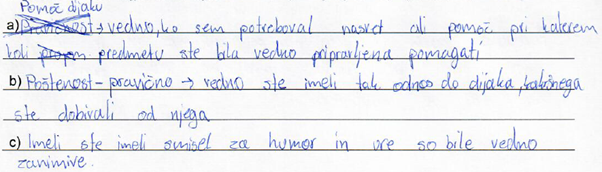 Pomoč dijaku
a) → vedno, ko sem potreboval nasvet ali pomoč pri katerem
koli predmetu ste bila vedno pripravljena pomagati
b) Poštenost - pravično → vedno ste imeli tak odnos do dijaka, kakšnega
ste dobivali od njega
c) Imeli ste imeli smisel za humor in ure so bile vedno
zanimive.